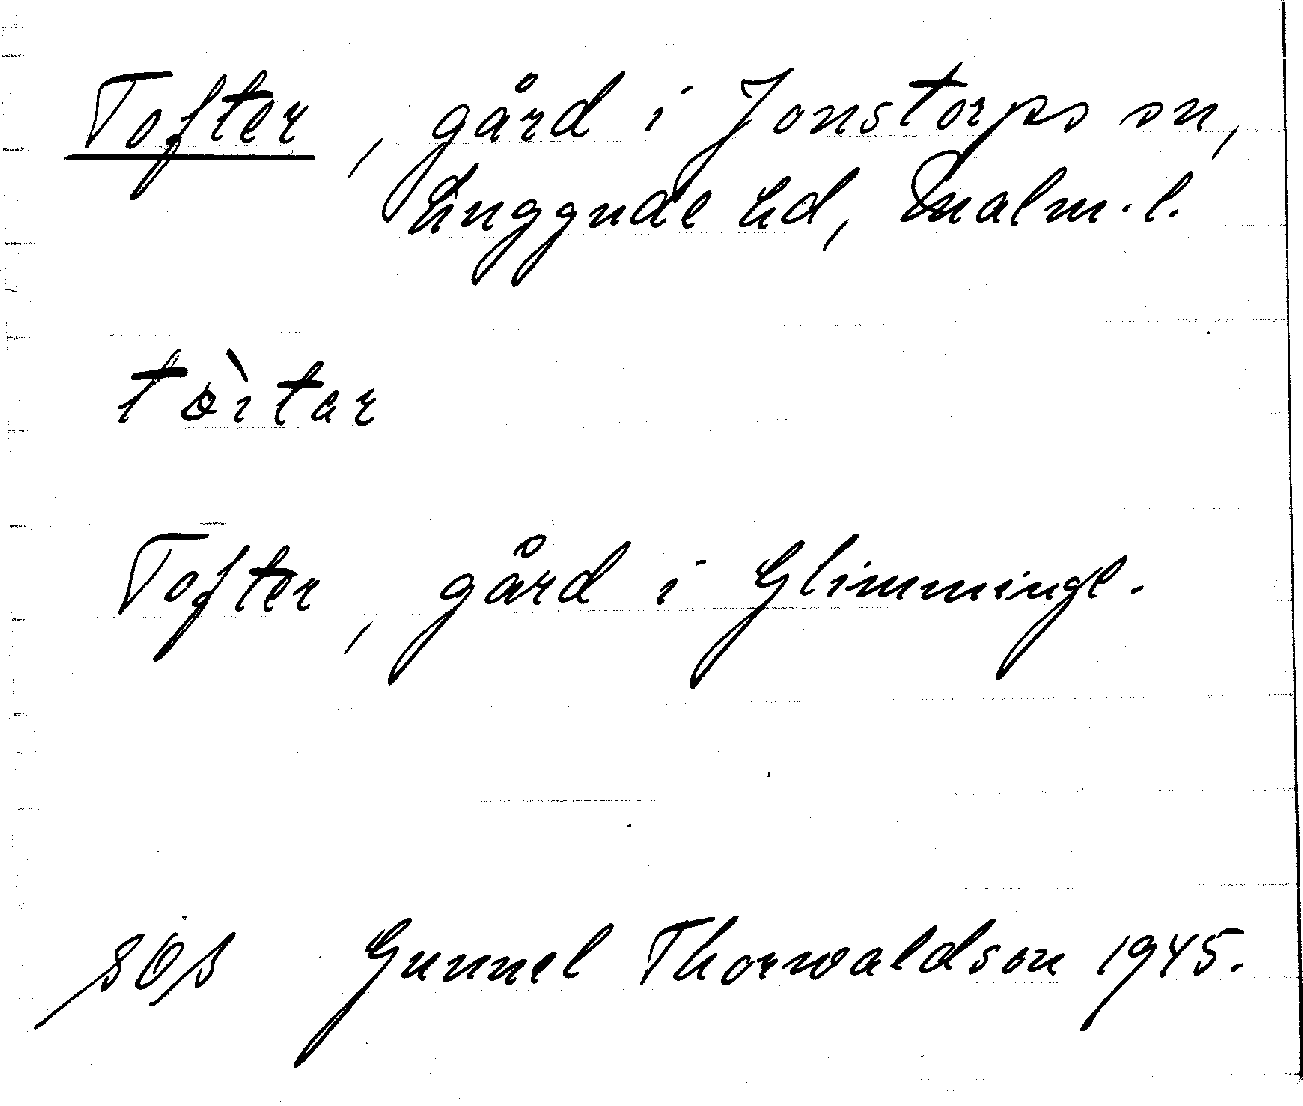 Tofter, gård i Jonstorps sn,
Luggude hd, Malm. l.
tòftar
Tofter, gård i Glimminge.
Gunnel Thorwaldson 1945.